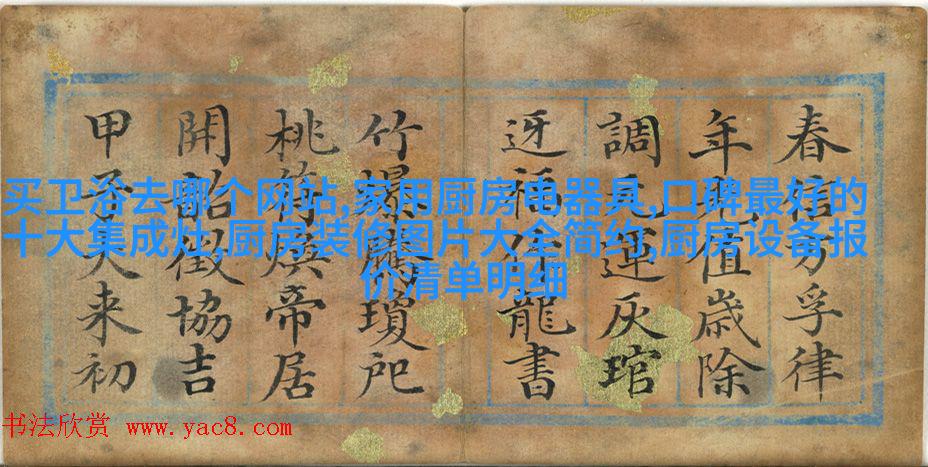 春信孚律
年光值歲除
調元運灰琯
迓福龍書
竹爆瓊戺
桃符煥帝居
開韶徵協吉
甲子來初
买卫浴去哪个网站,家用厨房电器具,口碑最好的
十大集成灶,厨房装修图片大全简约,厨房设备报
价清单明细
书法欣赏 www.yac8.com